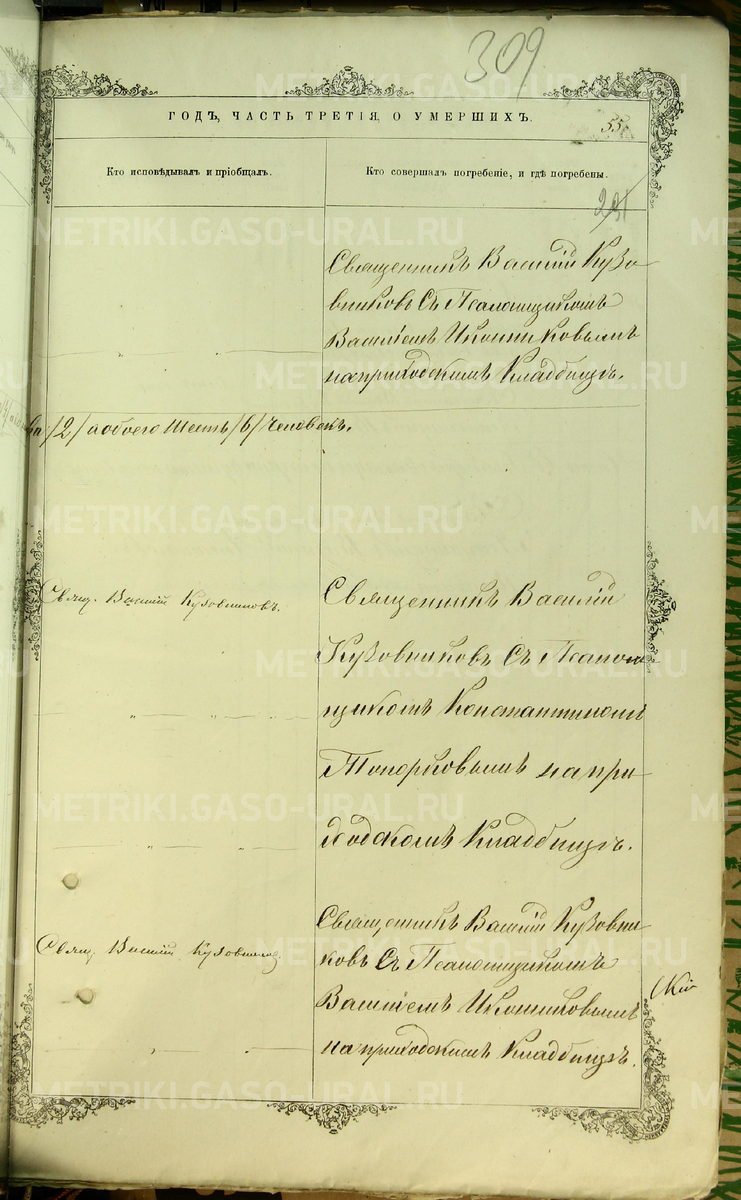 309
ГОДЪ, ЧАСТЬ ТРЕТІЯ, О УМЕРШИХЪ.
55
Кто исповѣдывалъ и пріобщалъ.
Кто совершалъ погребеніе, и гдѣ погребены.
231
Священникъ Василій Кузо-
вниковъ съ Псаломщикомъ
Василіемъ Иконниковымъ
на приходскомъ Кладбищѣ.
/2/ а обоего Шесть /6/ Человѣкъ.
Свящ. Василій Кузовниковъ.
Священникъ Василій
Кузовниковъ съ Псалом-
щикомъ Константиномъ
Топорковымъ на при-
ходскомъ Кладбищѣ.
Свящ. Василій Кузовниковъ
Священникъ Василій Кузовни-
ковъ съ Псаломщикомъ
Василіемъ Иконниковымъ
на приходскомъ Кладбищѣ.
METRIKI.GASO-URAL.RU